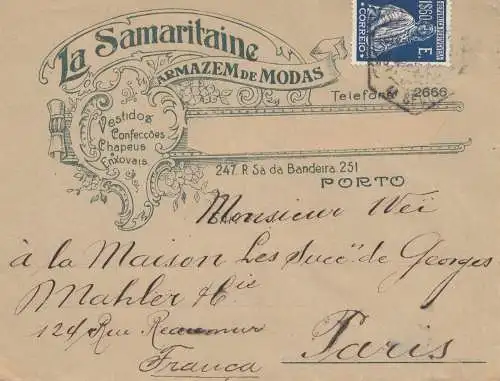 La Samaritaine
ARMAZEM DE MODAS
REPUBLICA PORTUGUESA
1$50 E.
CORREIO
Telefone 2666
Vestidos
Confecções
Chapeus
Enxovais
247. R. Sá da Bandeira. 251
PORTO
Monsieur Weï
à la Maison Les Succ.rs de Georges
Mahler & Cie
124 Rue Reaumur
Paris
França